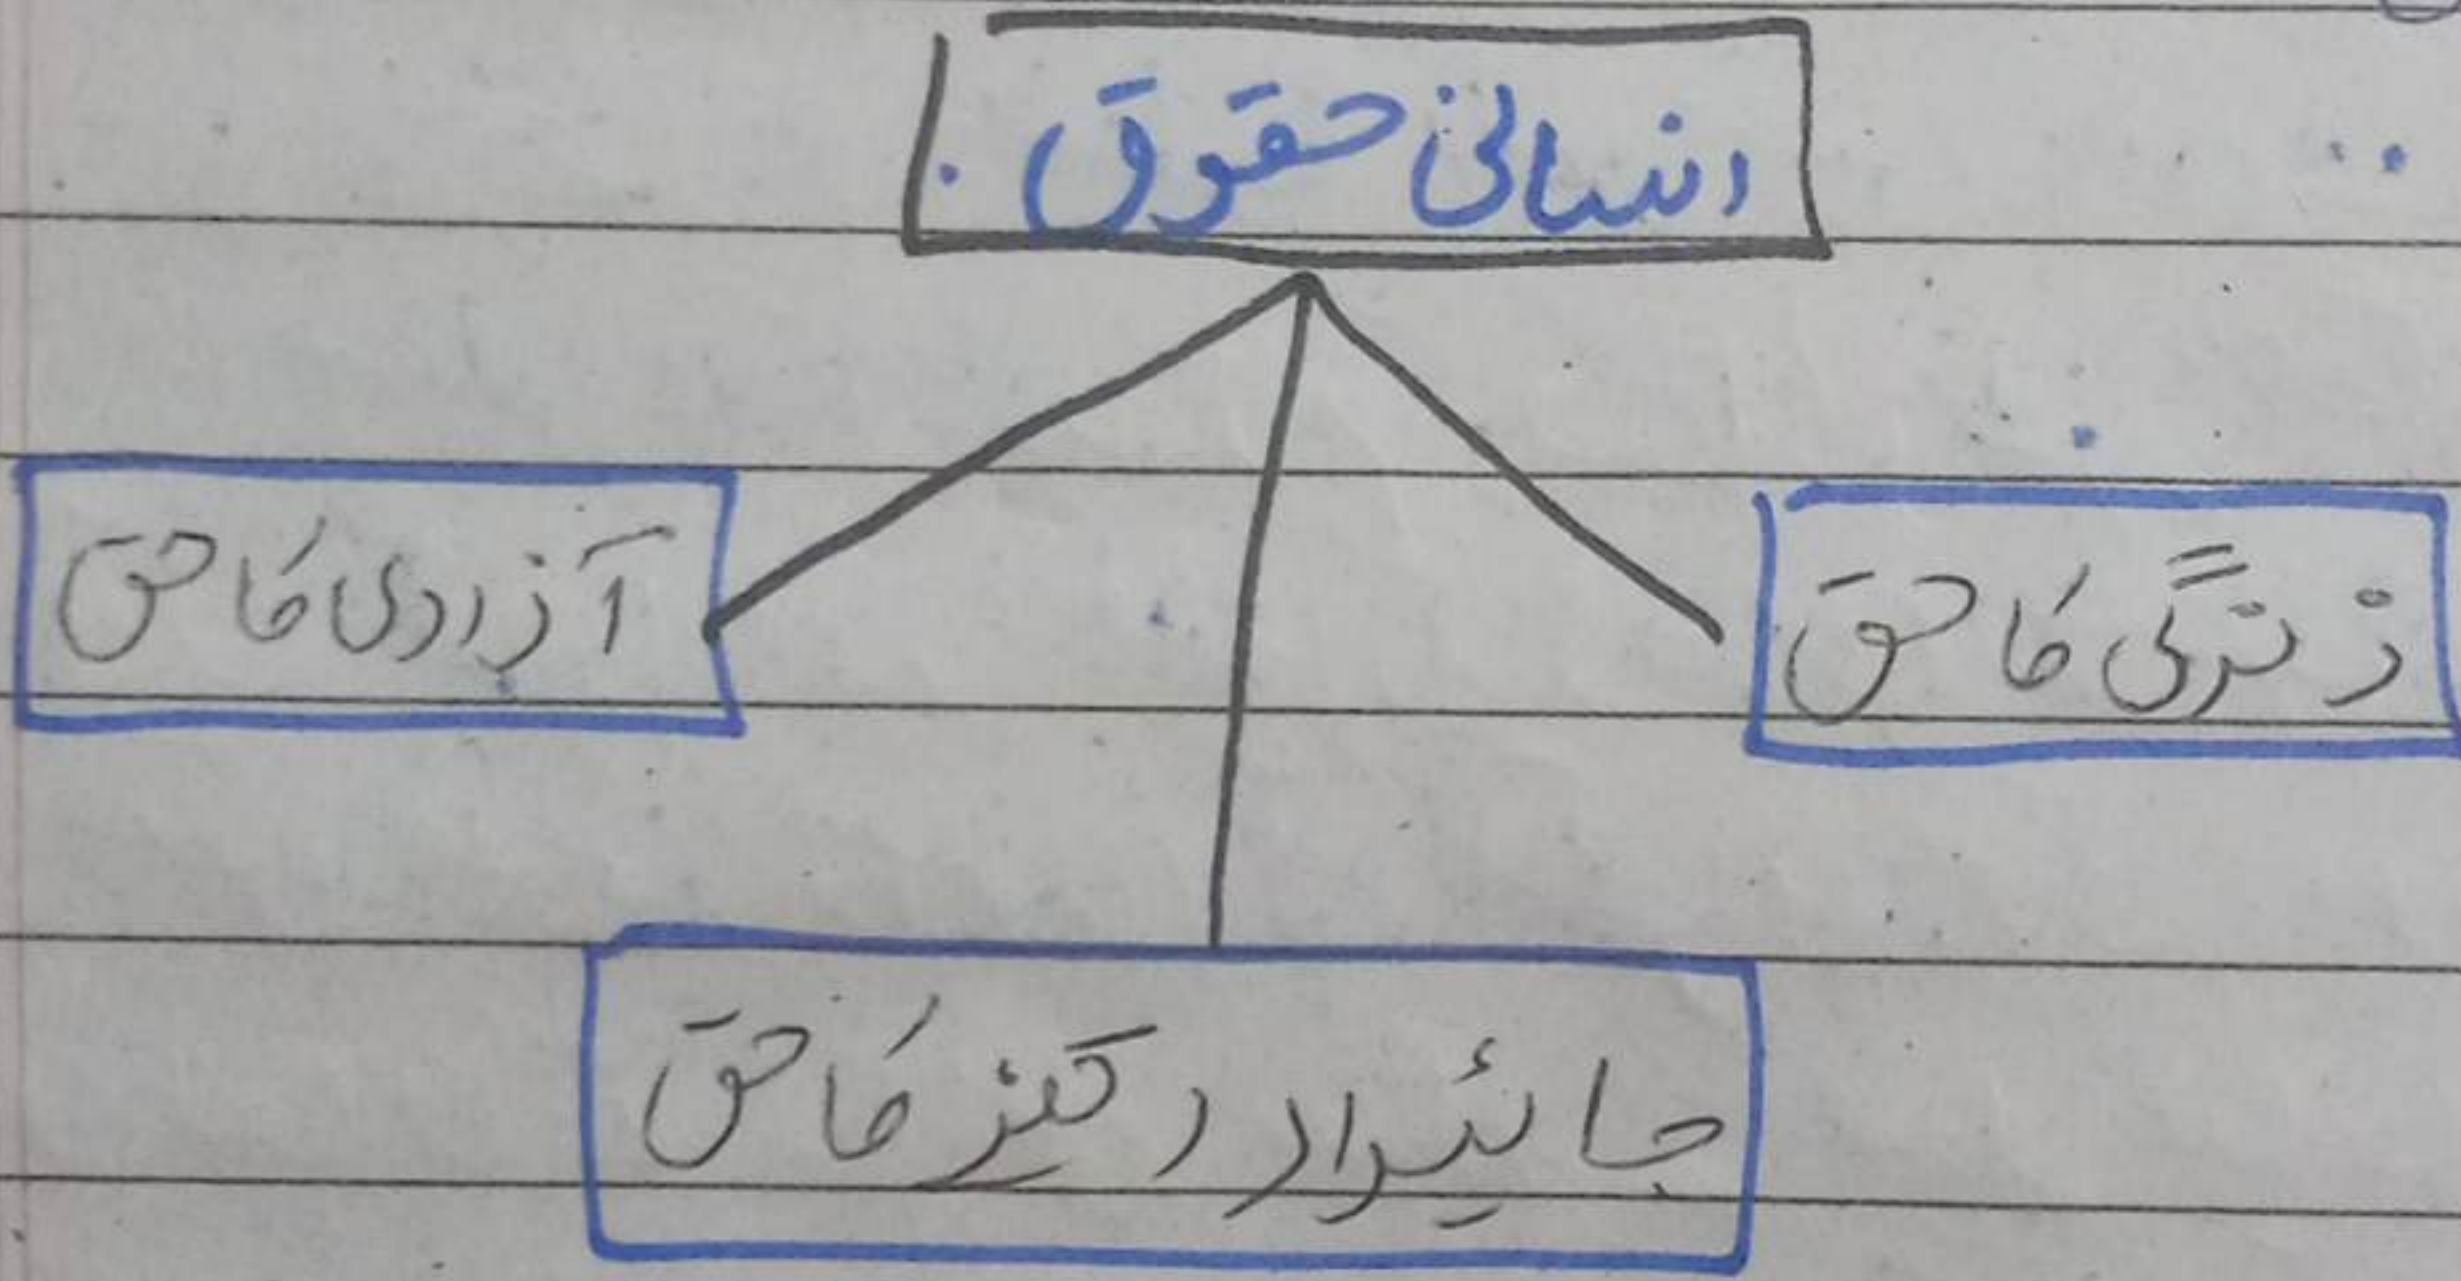 انسانی حقوق
زندگی کا حق
آزادی کا حق
جائیداد رکھنے کا حق